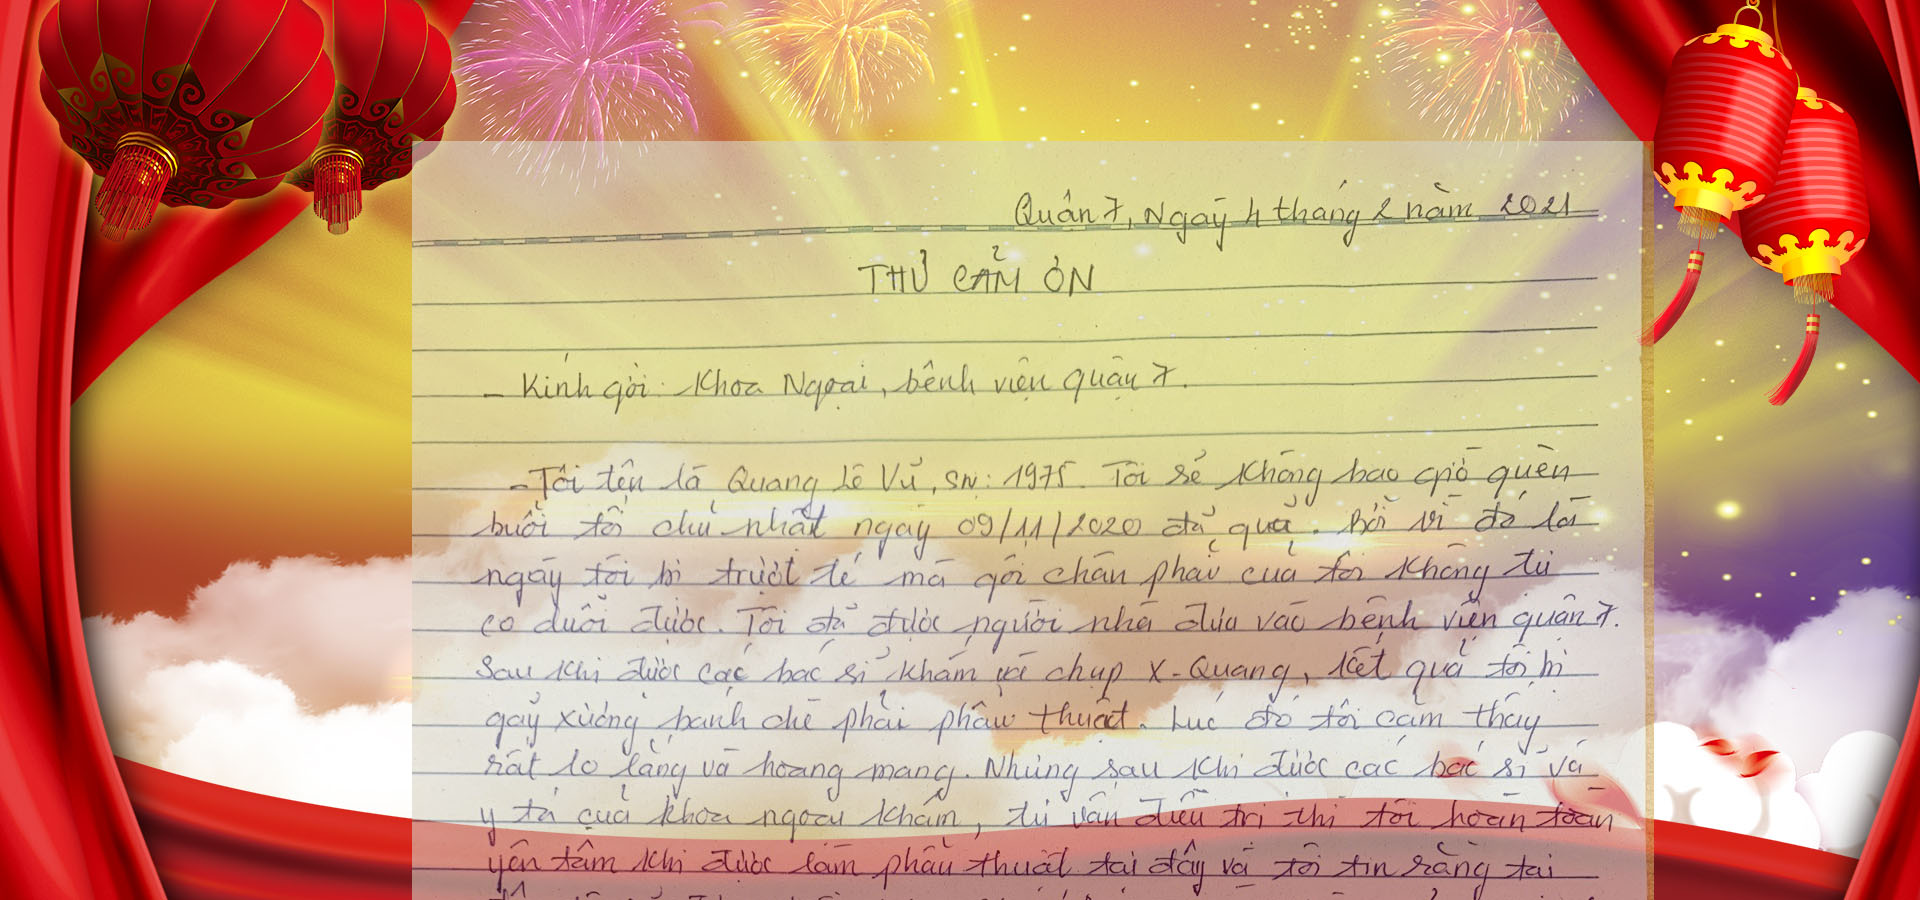 Quận 7, Ngày 4 tháng 2 năm 2021
THƯ CẢM ƠN
- Kính gởi: Khoa Ngoại, bệnh viện quận 7.
- Tôi tên là Quang Lê Vũ, SN: 1975. Tôi sẽ không bao giờ quên
buổi tối chủ nhật ngày 09/11/2020 đã qua. Bởi vì đó là
ngày tôi bị trượt té mà gối chân phải của tôi không tự
co duỗi được. Tôi đã được người nhà đưa vào bệnh viện quận 7.
Sau khi được các bác sĩ khám và chụp X-Quang, kết quả tôi bị
gãy xương bánh chè phải phẫu thuật. Lúc đó tôi cảm thấy
rất lo lắng và hoang mang. Nhưng sau khi được các bác sĩ và
y tá của khoa ngoại khám, tư vấn điều trị thì tôi hoàn toàn
yên tâm khi được làm phẫu thuật tại đây và tôi tin rằng tại